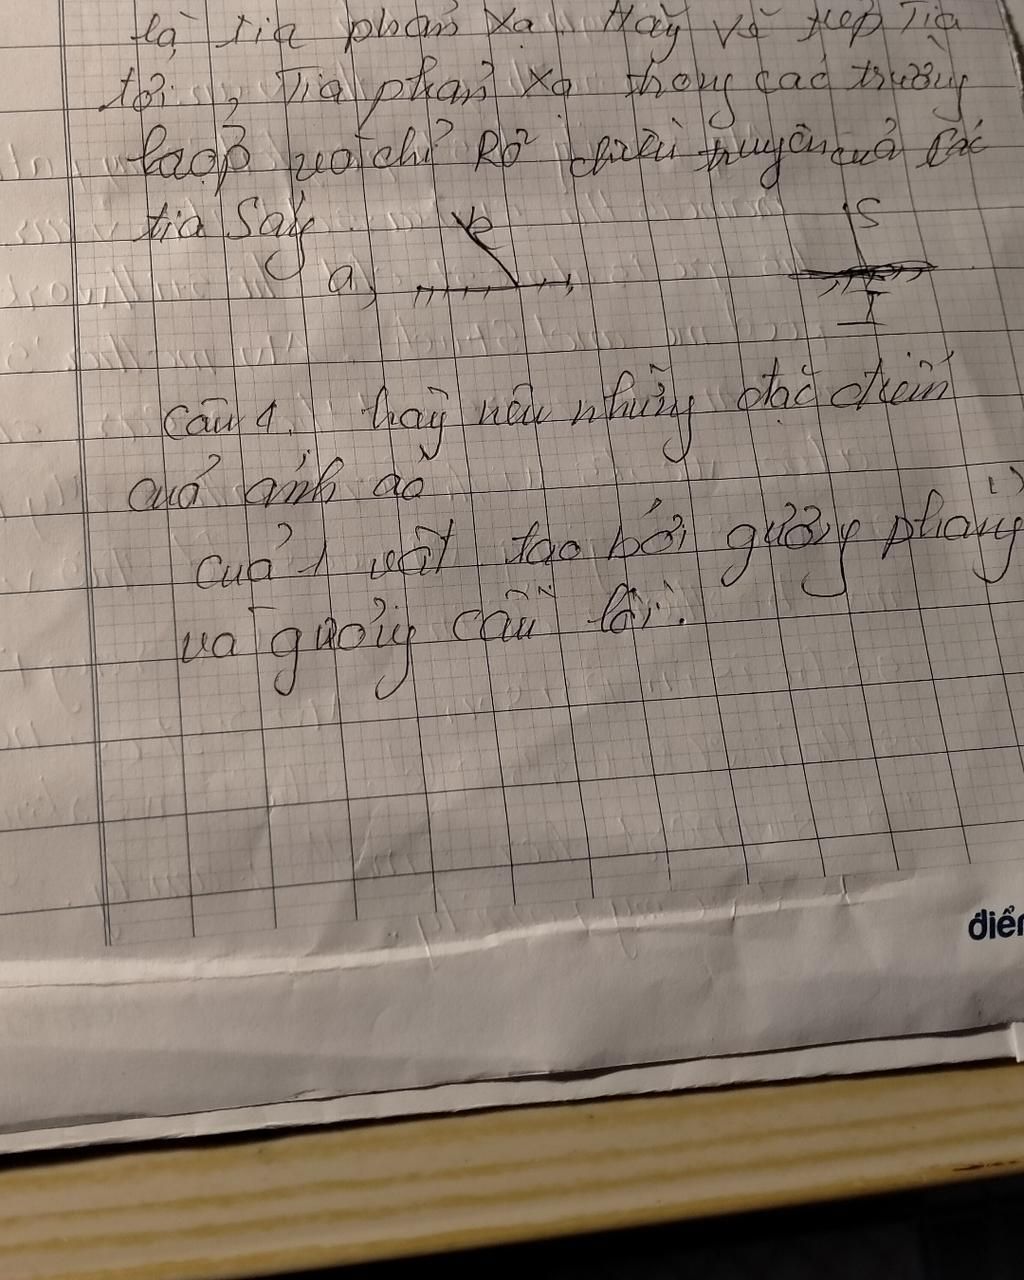 là tia phản xạ. Hãy vẽ tiếp Tia
tới, Tia phản xạ trong các trường
hợp và chỉ Rõ chiều truyền của các
tia Sáng
a, R S
I
câu 4. hãy nêu những đặc điểm
của ảnh ảo
của 1 vật tạo bởi gương phẳng
và gương cầu lồi.
điểm